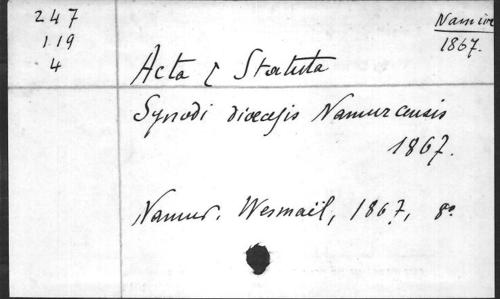 247
119
4
Namur
1867.
Acta & Statuta
Synodi dioecesis Namurcensis
1867.
Namur. Wesmaël, 1867, 8º